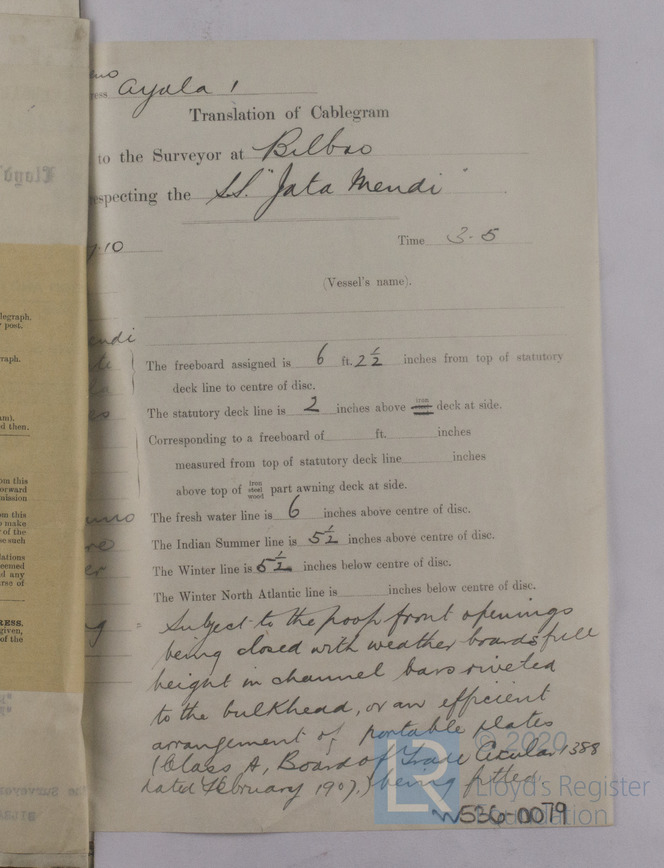 ress Ayala !
Translation of Cablegram
to the Surveyor at Bilbao
especting the SS. "Jata Mendi"
7.10
Time 3-5
(Vessel's name).
legraph.
post.
endi
raph.
The freeboard assigned is 6 ft. 2 1/2 inches from top of statutory
deck line to centre of disc.
The statutory deck line is 2 inches above iron deck at side.
am).
d then.
Corresponding to a freeboard of ft. inches
measured from top of statutory deck line inches
om this
orward
mission
above top of iron steel wood part awning deck at side.
The fresh water line is 6 inches above centre of disc.
om this
o make
of the
e such
The Indian Summer line is 5 1/2 inches above centre of disc.
lations
eemed
d any
urse of
The Winter line is 5 1/2 inches below centre of disc.
The Winter North Atlantic line is inches below centre of disc.
RESS.
given,
of the
Subject to the poop front openings
being closed with weather boards full
height in channel bars riveted
to the bulkhead, or an efficient
arrangement of portable plates
(Class A, Board of Trade Circular 1388
dated February 1907.) being fitted
© 2020
LR Lloyd's Register
Foundation
W536-0079